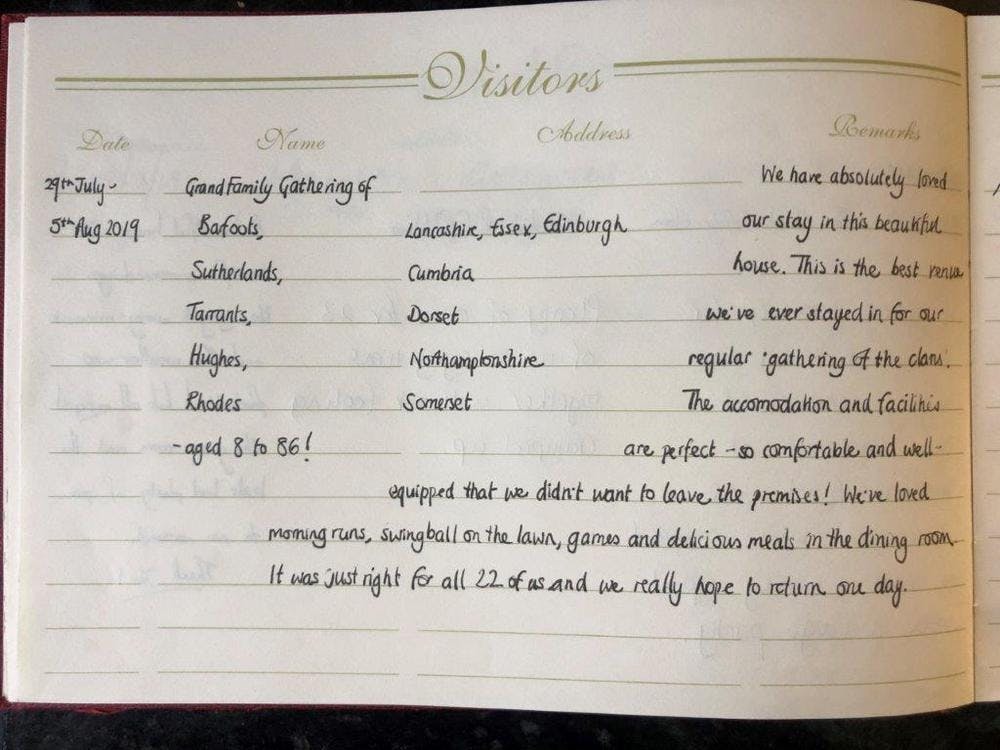 Visitors
Date Name Address Remarks
29th July - Grand Family Gathering of We have absolutely loved
5th Aug 2019 Bafoots, Lancashire, Essex, Edinburgh our stay in this beautiful
Sutherlands, Cumbria house. This is the best venue
Tarrants, Dorset we've ever stayed in for our
Hughes, Northamptonshire regular 'gathering of the clans'.
Rhodes Somerset The accomodation and facilities
- aged 8 to 86! are perfect - so comfortable and well-
equipped that we didn't want to leave the premises! We've loved
morning runs, swingball on the lawn, games and delicious meals in the dining room.
It was just right for all 22 of us and we really hope to return one day.